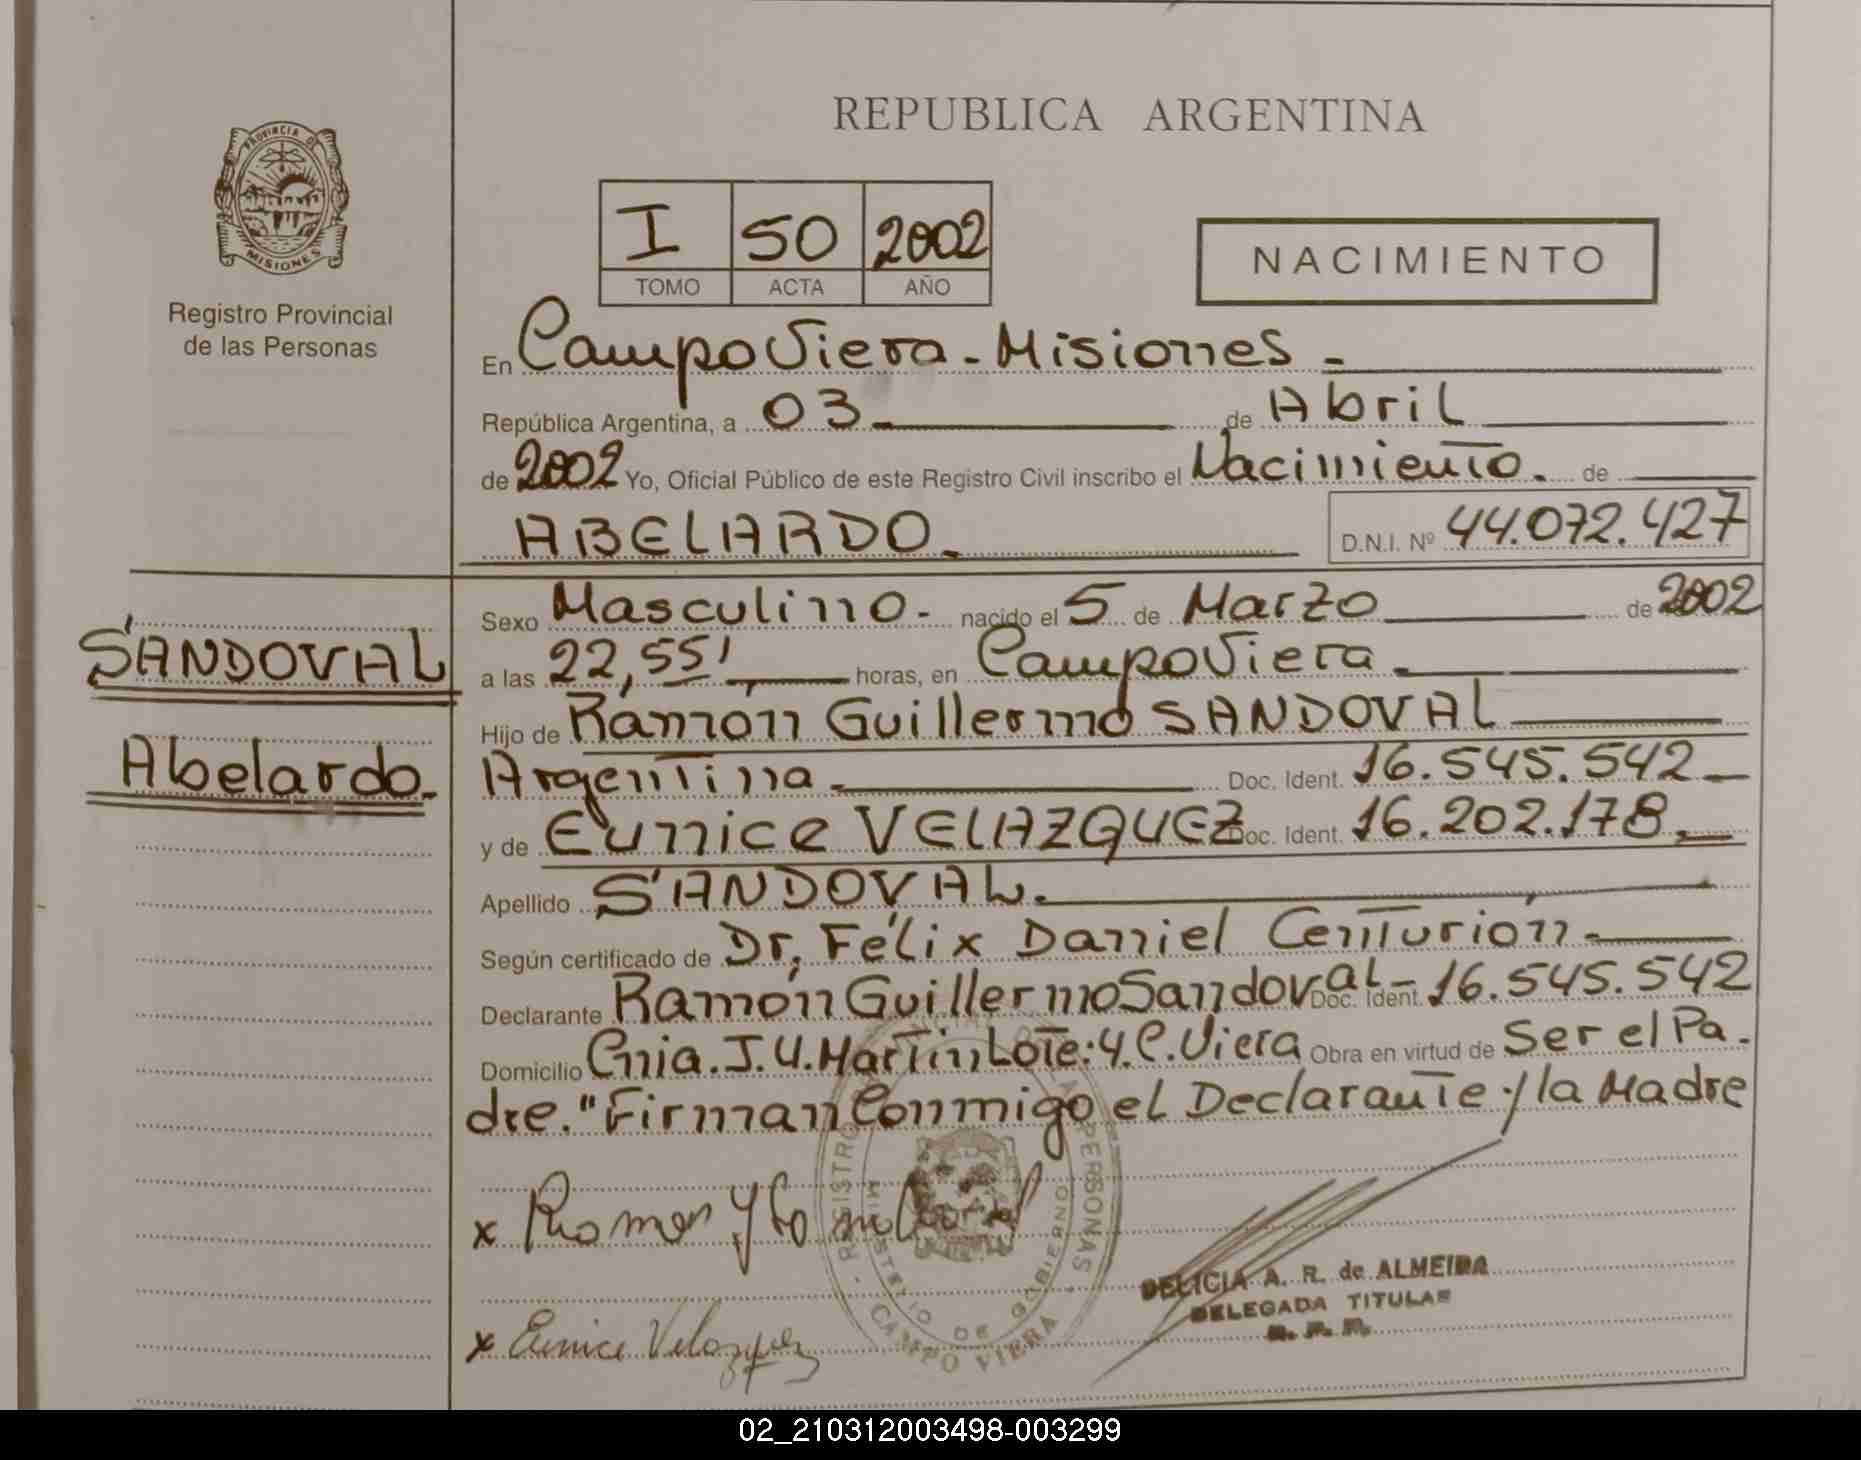 REPUBLICA ARGENTINA
PROVINCIA DE
MISIONES
Registro Provincial
de las Personas
I 50 2002
TOMO ACTA AÑO
NACIMIENTO
En Campo Viera - Misiones -
República Argentina, a 03 de Abril
de 2002 Yo, Oficial Público de este Registro Civil inscribo el Nacimiento. de
ABELARDO.
D.N.I. Nº 44.072.427
SANDOVAL
Abelardo.
Sexo Masculino - nacido el 5 de Marzo de 2002
a las 22,55' horas, en Campo Viera.
Hijo de Ramón Guillermo SANDOVAL
Argentina Doc. Ident. 16.545.542
y de Eunice VELAZQUEZ Doc. Ident. 16.202.178.
Apellido SANDOVAL.
Según certificado de Dr, Félix Daniel Centurión
Declarante Ramón Guillermo Sandoval Doc. Ident. 16.545.542
Domicilio Cnia. J.U. Martin Lote: 4. C. Viera Obra en virtud de Ser el Pa-
dre. "Firman Conmigo el Declarante y la Madre
x
x Eunice Velazquez
REGISTRO PERSONAS
MINISTERIO DE GOBIERNO
CAMPO VIERA
DELICIA A. R. de ALMEIDA
DELEGADA TITULAR
02_210312003498-003299